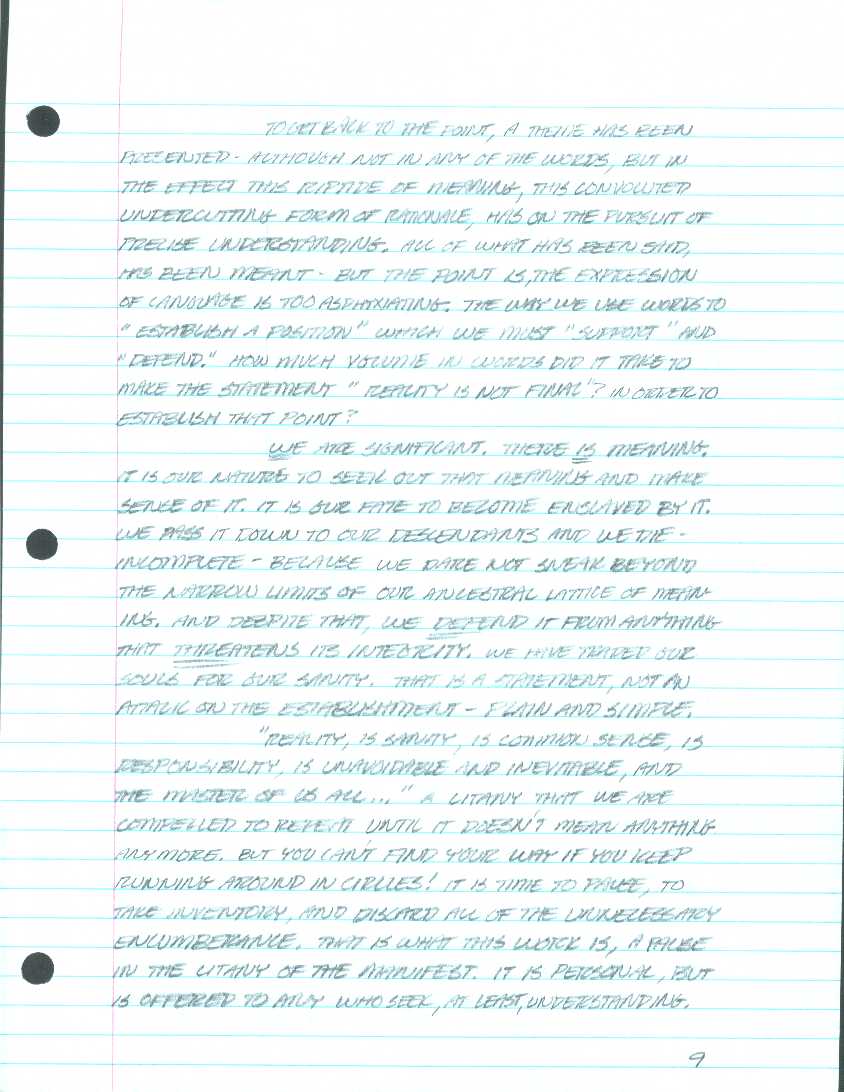 TO GET BACK TO THE POINT, A THEME HAS BEEN
PRESENTED - ALTHOUGH NOT IN ANY OF THE WORDS, BUT IN
THE EFFECT THIS RIPTIDE OF MEANING, THIS CONVOLUTED
UNDERCUTTING FORM OF RATIONALE, HAS ON THE PURSUIT OF
PRECISE UNDERSTANDING. ALL OF WHAT HAS BEEN SAID,
HAS BEEN MEANT - BUT THE POINT IS, THE EXPRESSION
OF LANGUAGE IS TOO ASPHYXIATING. THE WAY WE USE WORDS TO
"ESTABLISH A POSITION" WHICH WE MUST "SUPPORT" AND
"DEFEND." HOW MUCH VOLUME IN WORDS DID IT TAKE TO
MAKE THE STATEMENT "REALITY IS NOT FINAL"? IN ORDER TO
ESTABLISH THAT POINT?
WE ARE SIGNIFICANT. THERE IS MEANING.
IT IS OUR NATURE TO SEEK OUT THAT MEANING AND MAKE
SENSE OF IT. IT IS OUR FATE TO BECOME ENSLAVED BY IT.
WE PASS IT DOWN TO OUR DESCENDANTS AND WE DIE -
INCOMPLETE - BECAUSE WE DARE NOT SNEAK BEYOND
THE NARROW LIMITS OF OUR ANCESTRAL LATTICE OF MEAN-
ING. AND DESPITE THAT, WE DEFEND IT FROM ANYTHING
THAT THREATENS ITS INTEGRITY. WE HAVE TRADED OUR
SOULS FOR OUR SANITY. THAT IS A STATEMENT, NOT AN
ATTACK ON THE ESTABLISHMENT - PLAIN AND SIMPLE.
"REALITY, IS SANITY, IS COMMON SENSE, IS
RESPONSIBILITY, IS UNAVOIDABLE AND INEVITABLE, AND
THE MASTER OF US ALL..." A LITANY THAT WE ARE
COMPELLED TO REPEAT UNTIL IT DOESN'T MEAN ANYTHING
ANYMORE. BUT YOU CAN'T FIND YOUR WAY IF YOU KEEP
RUNNING AROUND IN CIRCLES! IT IS TIME TO PAUSE, TO
TAKE INVENTORY, AND DISCARD ALL OF THE UNNECESSARY
ENCUMBERANCE. THAT IS WHAT THIS WORK IS, A PAUSE
IN THE LITANY OF THE MANIFEST. IT IS PERSONAL, BUT
IS OFFERED TO ANY WHO SEEK, AT LEAST, UNDERSTANDING.
9